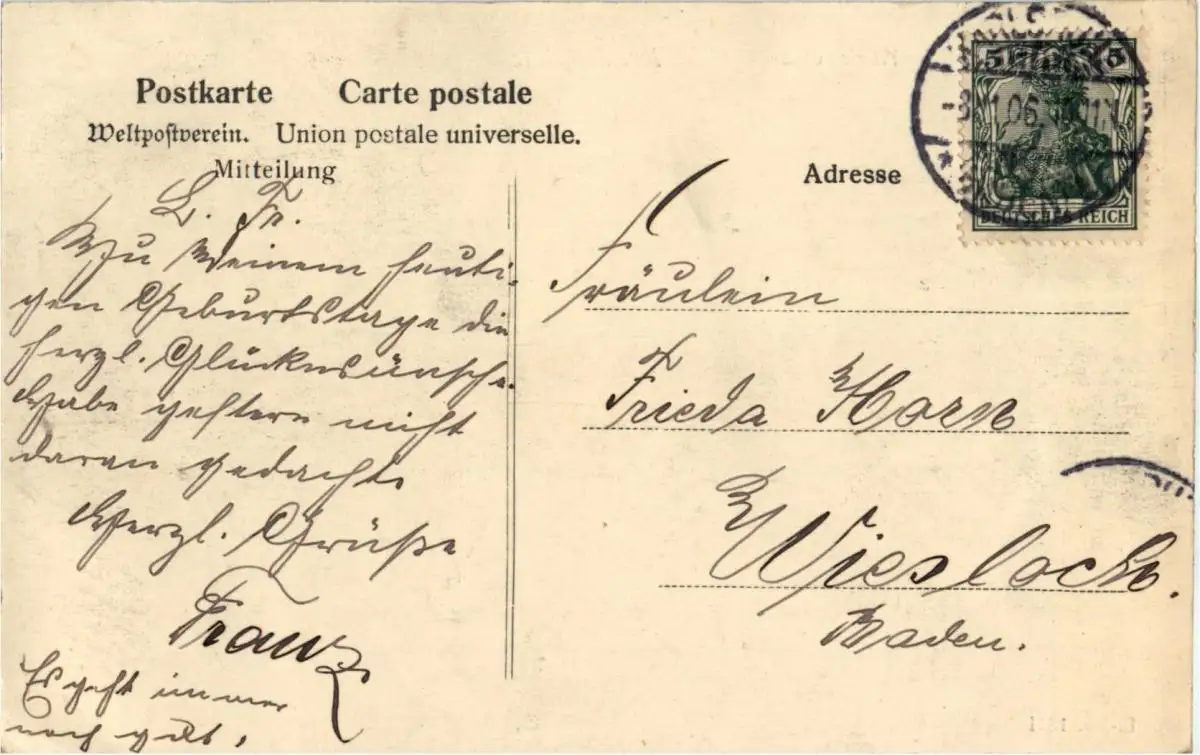 Postkarte Carte postale
Weltpostverein. Union postale universelle.
Mitteilung
L. Fr.
Zu Deinem heuti-
gen Geburtstage die
herzl. Glückwünsche.
Habe gestern nicht
daran gedacht.
Herzl. Grüße
Franz
Es geht immer
noch gut.
Adresse
Fräulein
Frieda Horn
Wiesloch.
Baden.
5 5
06
DEUTSCHES REICH